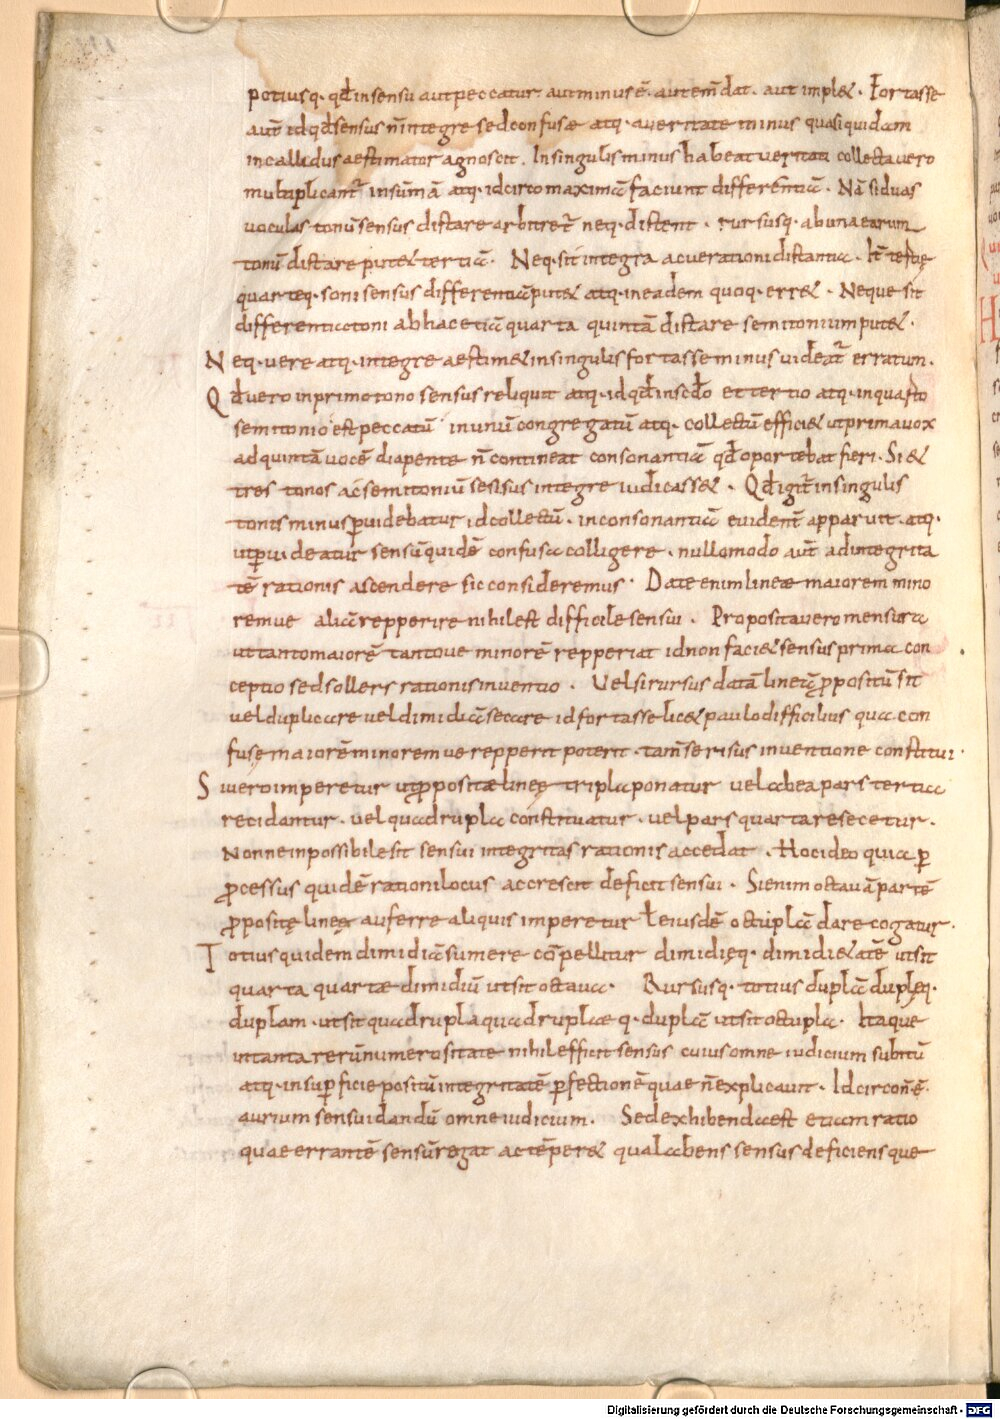 potiusq· qđ in sensu aut peccatur aut minus ē· aut em̄dat· aut implet· Fortasse
aut̄ id qđ sensus n̄ integre sed confuse atq· a veritate minus quasi quidam
in callidus aestimator agnoscit. In singulis minus habeat veritati collecta vero
multiplicant̄ in sum̄ā atq· idcirco maximā faciunt differentiā· Nā si duas
voculas tonū sensus distare arbitret̄ neq· distent· rursusq· ab una earum
tonū distare putet tertiā· Neq· sit integra ac veratoni distantia· It̄ tertię
quarteq· soni sensus differentiā putet atq· in eadem quoq· erret· Neque sit
differentia toni ab hac etiā quarta quintā distare semitonium putet·
Neq· vere atq· integre aestimet in singulis fortasse minus videat̄ erratum·
Qđ vero in primo tono sensus reliquit atq· id qđ in scđo et tertio atq· in quarto
semitonio est peccatū in unū congregatū atq· collectū efficiet ut prima vox
ad quintā vocē diapente n̄ contineat consonantiā qđ oportebat fieri· Si et
tres tonos ac semitoniū sesisus integre iudicasset· Qđ igit̄ in singulis
tonis minus p̱videbatur id collectū· in consonantia evident̄ apparuit· atq·
ut p̱videatur sensū quidē confusa colligere· nullo modo aut̄ ad integrita
tē rationis ascendere sic consideremus· Date enim lineae maiorem mino
remve aliā repperire nihil est difficile sensui· Proposita vero mensura
ut tanto maiorē tantove minorē repperiat id non faciet sensus prima con
ceptio sed sollers rationis inventio· Vel si rursus datā lineā p̱positū sit
vel duplicare vel dimidiā secare id fortasse licet paulo difficilius quā con
fuse maiorē minoremve repperit poterit· tam̄ sensus inventione constitui·
Si vero imperetur ut p̱positae lineę tripla ponatur vel ab ea pars tertia
recidantur· vel quadrupla constituatur· vel pars quarta resecetur·
Nonne inpossibile sit sensui integritas rationis accedat· Hoc ideo quia p̱
p̱cessus quidē rationi locus accrescit deficit sensui· Si enim octavā partē
p̱positę lineę auferre aliquis imperetur ł eiusdē octuplā dare cogatur·
Totius quidem dimidiā sumere cōpellitur dimidięq· dimidietatē ut sit
quarta quartae dimidiū ut sit octava· Rursusq· totius duplā duplęq·
duplam· ut sit quadrupla quadruplae q· duplā ut sit octupla· Itaque
in tanta rerū numerositate nihil efficit sensus cuius omne iudicium subitū
atq· in sup̱ficie positū integritatē p̱fectionē quae n̄ explicavit· Idcirco n̄ ē·
aurium sensui dandū omne iudicium· Sed exhibenda est etiam ratio
quae errantē sensū regat ac tēperet qua labens sensus deficiensque
Digitalisierung gefördert durch die Deutsche Forschungsgemeinschaft - DFG